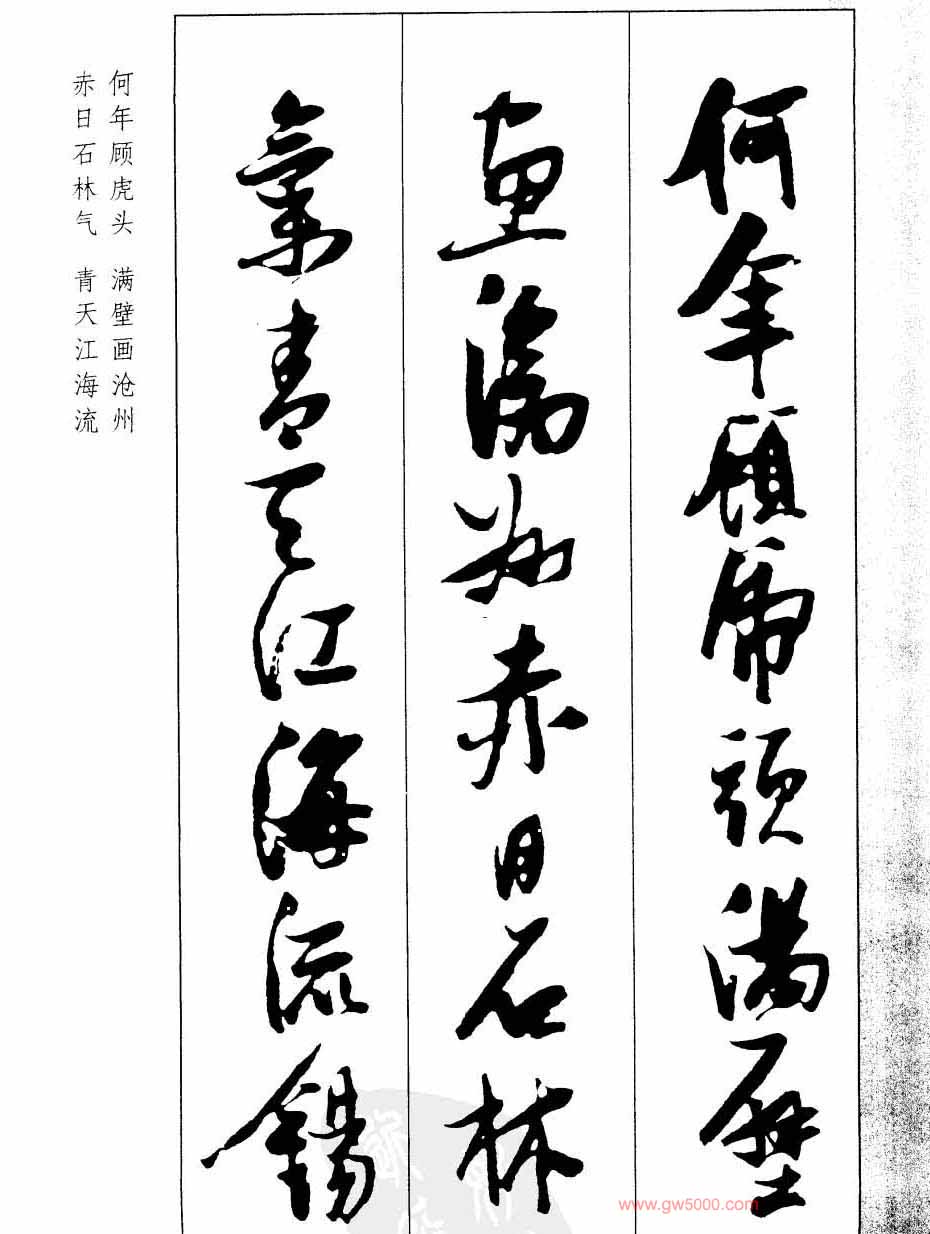 何年顧虎頭滿壁
畫州赤日石林
氣青天江海流錫
何年顾虎头 满壁画沧州
赤日石林气 青天江海流
www.gw5000.com